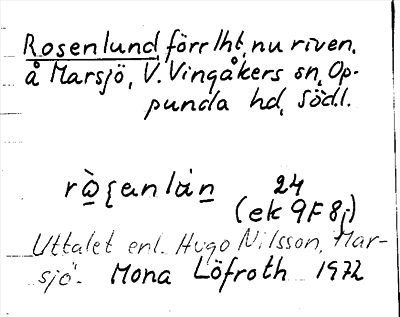 Rosenlund förr lht, nu riven,
å Marsjö, V. Vingåkers sn, Op-
punda hd, Södl.
24
(ek 9F8j)
Uttalet enl. Hugo Nilsson, Mar-
sjö. Mona Löfroth 1972